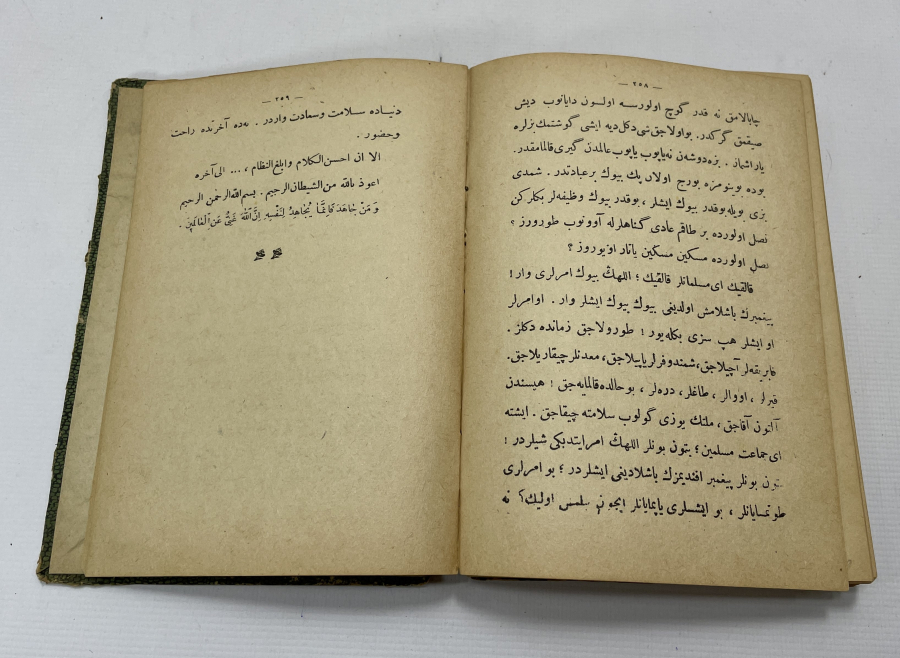 — ٢٥٨ —
چابالامق نه قدر گوچ اولورسه اولسون دایانوب دیش
صیقمق گركدر. بو اولاجق شی دكل دیه ایشی گوشتمك بزلره
یاراشماز . بزه دوشه‌ن نه یاپوب یاپوب عالمدن گیری قالمامقدر.
بوده بوینومزه بورج اولان پك بیوك بر عبادتدر . شمدی
بزی بویله بوقدر بیوك ایشلر ، بوقدر بیوك وظیفه‌لر بكلركن
نصل اولورده بر طاقم عادی گناهلرله آوونوب طورورز ؟
نصل اولورده مسكین مسكین یاتار اویوروز ؟
قالقیك ای مسلمانلر قالقیك ؛ اللهڭ بیوك امرلری وار !
پیغمبرڭ باشلامش اولدیغی بیوك بیوك ایشلر وار . او امرلر
او ایشلر هپ سزی بكله‌یور ! طورولاجق زمانده دكلز .
فابریقه‌لر آچیلاجق، شمندوفرلر یاپیلاجق، معدنلر چیقاریلاجق.
قیرلر ، اووالر ، طاغلر ، دره‌لر ، بو حالده قالمایه‌جق ! هپسندن
آلتون آقاجق ، ملتك یوزی گولوب سلامته چیقاجق . ایشته
ای جماعت مسلمین ؛ بتون بونلر اللهڭ امر ایتدیكی شیلردر !
بتون بونلر پیغمبر افندیمزك باشلادیغی ایشلردر ؛ بو امرلری
طوتمایانلر ، بو ایشلری یاپمایانلر ایچون بیلمش اولیك كه نه
— ٢٥٩ —
دنیاده سلامت وسعادت واردر . نه‌ده آخرتده راحت
وحضور .
الا ان احسن الكلام وابلغ النظام ، ... الی آخره
اعوذ بالله من الشیطان الرجیم . بسم الله الرحمن الرحیم
وَمَنْ جَاهَدَ فَاِنَّمَا يُجَاهِدُ لِنَفْسِهِ اِنَّ اللّٰهَ لَغَنِىٌّ عَنِ الْعَالَمِينَ .